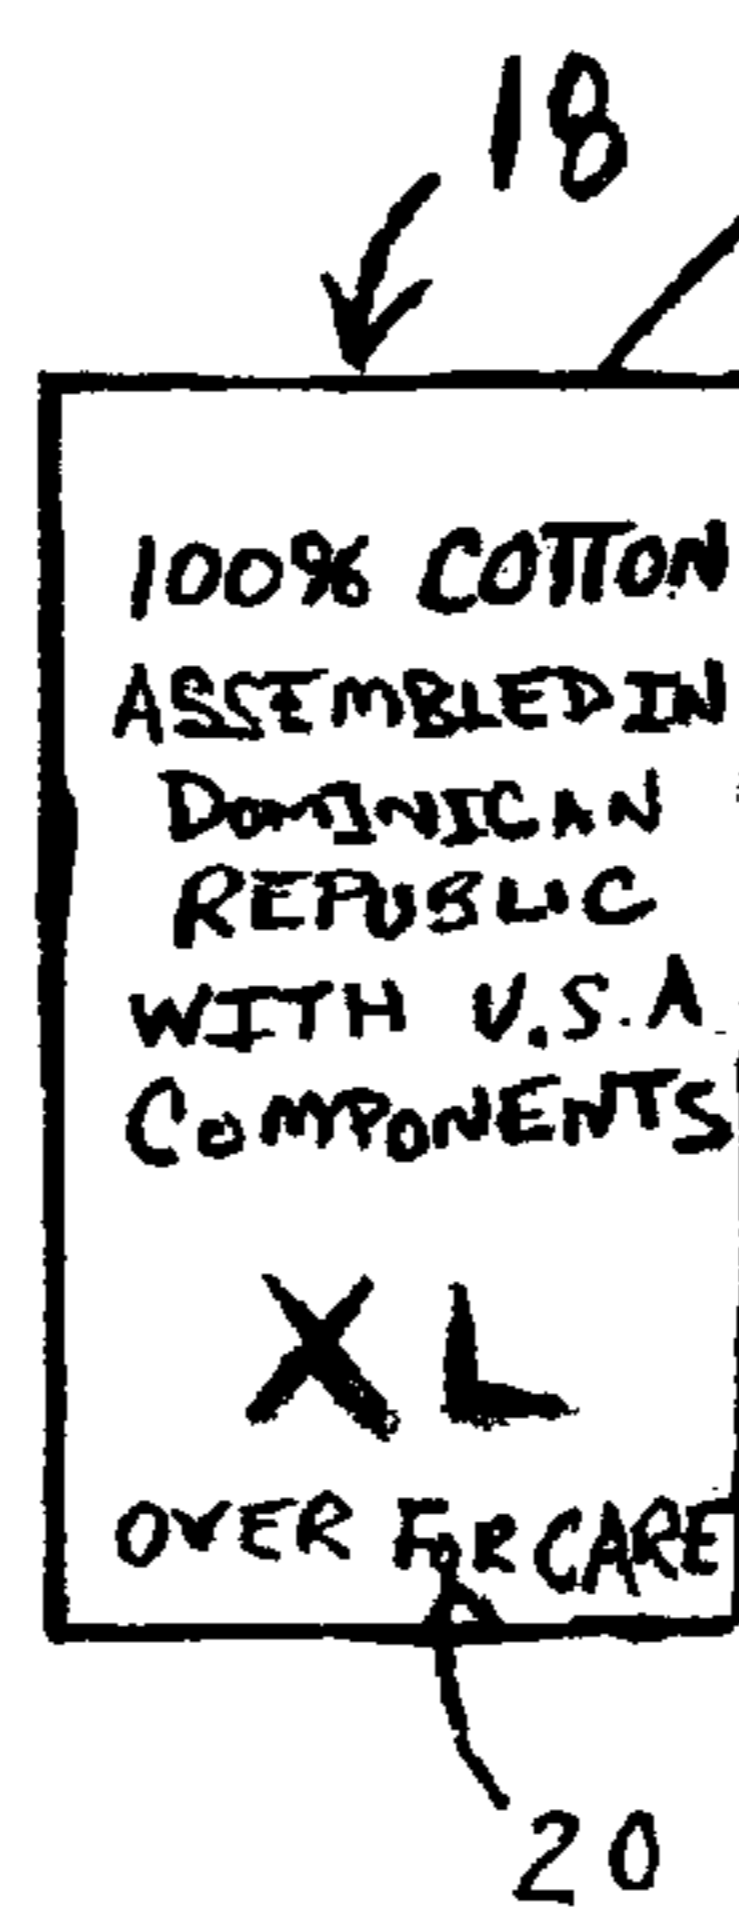 18
100% COTTON
ASSEMBLED IN
DOMINICAN
REPUBLIC
WITH U.S.A
COMPONENTS
XL
OVER FOR CARE
20